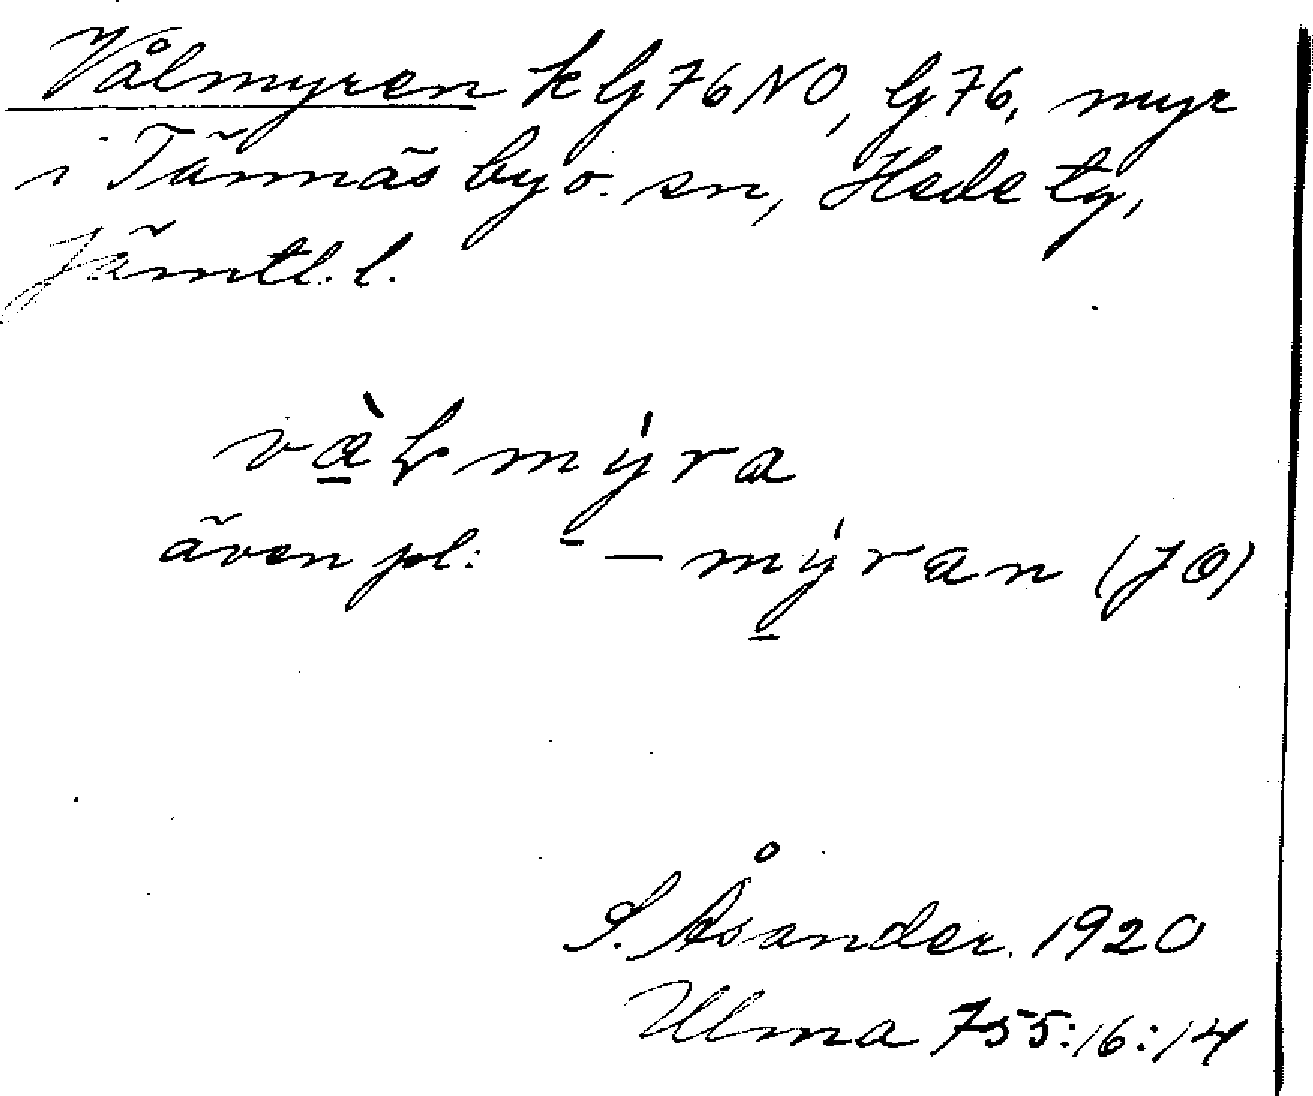 Vålmyren k G 76 NO, G 76, myr
i Tännäs by o. sn, Hede tg,
Jämtl. l.
vàḷmýra
även pl: - — mýran (JO)
S. Åsander. 1920
Ulma 755:16:14